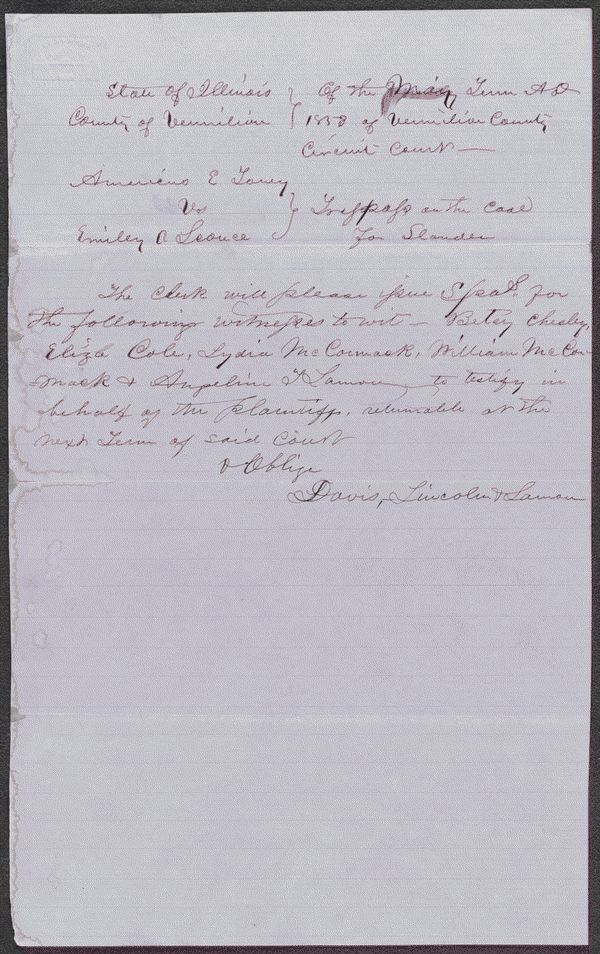 State of Illinois } Of the May Term A D
County of Vermilion } 1858 of Vermilion County
Circuit Court —
Americus E Toney
Vs } Trespass on the Case
Emiley R Sconce for Slander
The Clerk will please issue Spas. for
the following witnesses to wit — Betsy Chesley,
Eliza Cole, Lydia McCormack, William McCor
mack & Angeline T Lamon to testify in
behalf of the plaintiff, returnable at the
next Term of said Court
& Oblige
Davis, Lincoln & Lamon